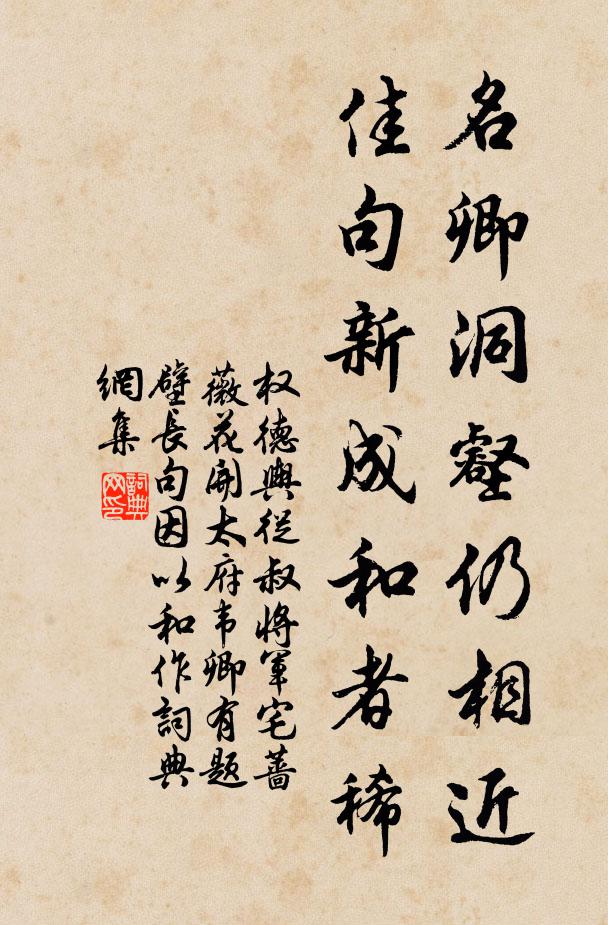 名卿洞壑仍相近
佳句新成和者稀
权德輿從叔將軍宅薔
薇花開太府韦卿有题
壁長句因以和作詞典
網集
詞典
网印